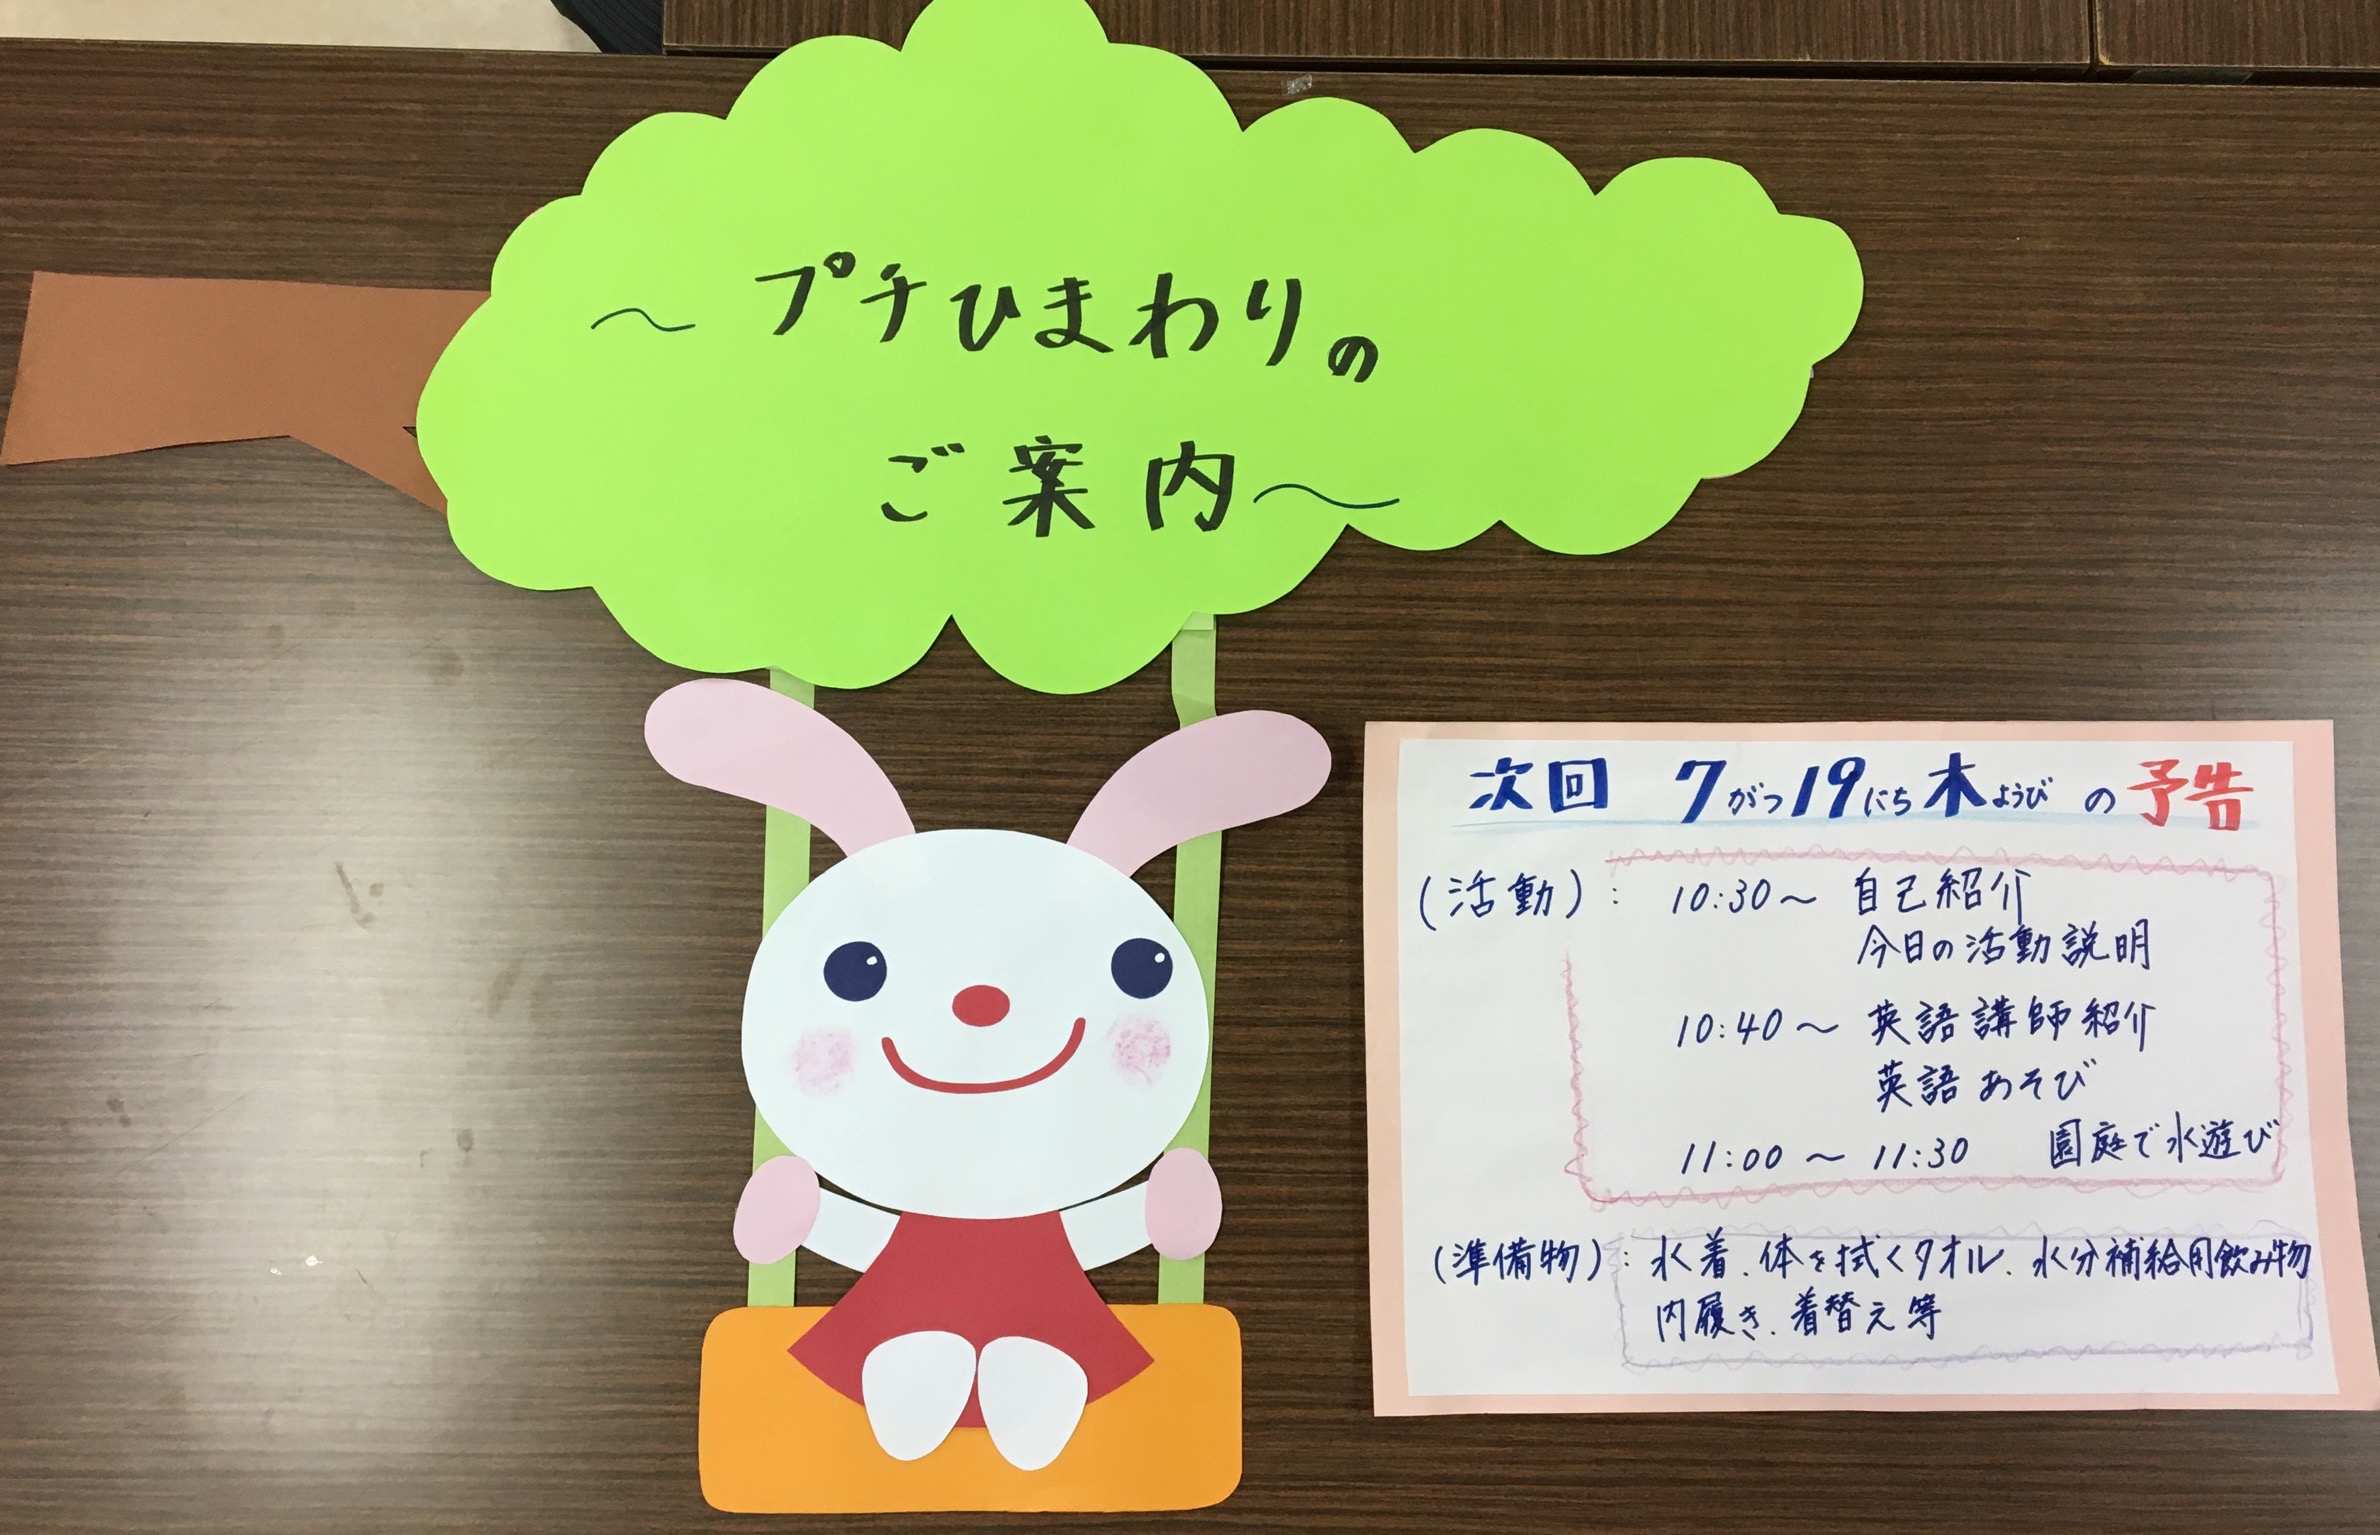 ～プチひまわりの
ご案内～
次回 7がつ19にち木ようびの予告
(活動): 10:30～ 自己紹介
今日の活動説明
10:40～ 英語講師紹介
英語あそび
11:00～11:30 園庭で水遊び
(準備物): 水着、体を拭くタオル、水分補給用飲み物
内履き、着替え等